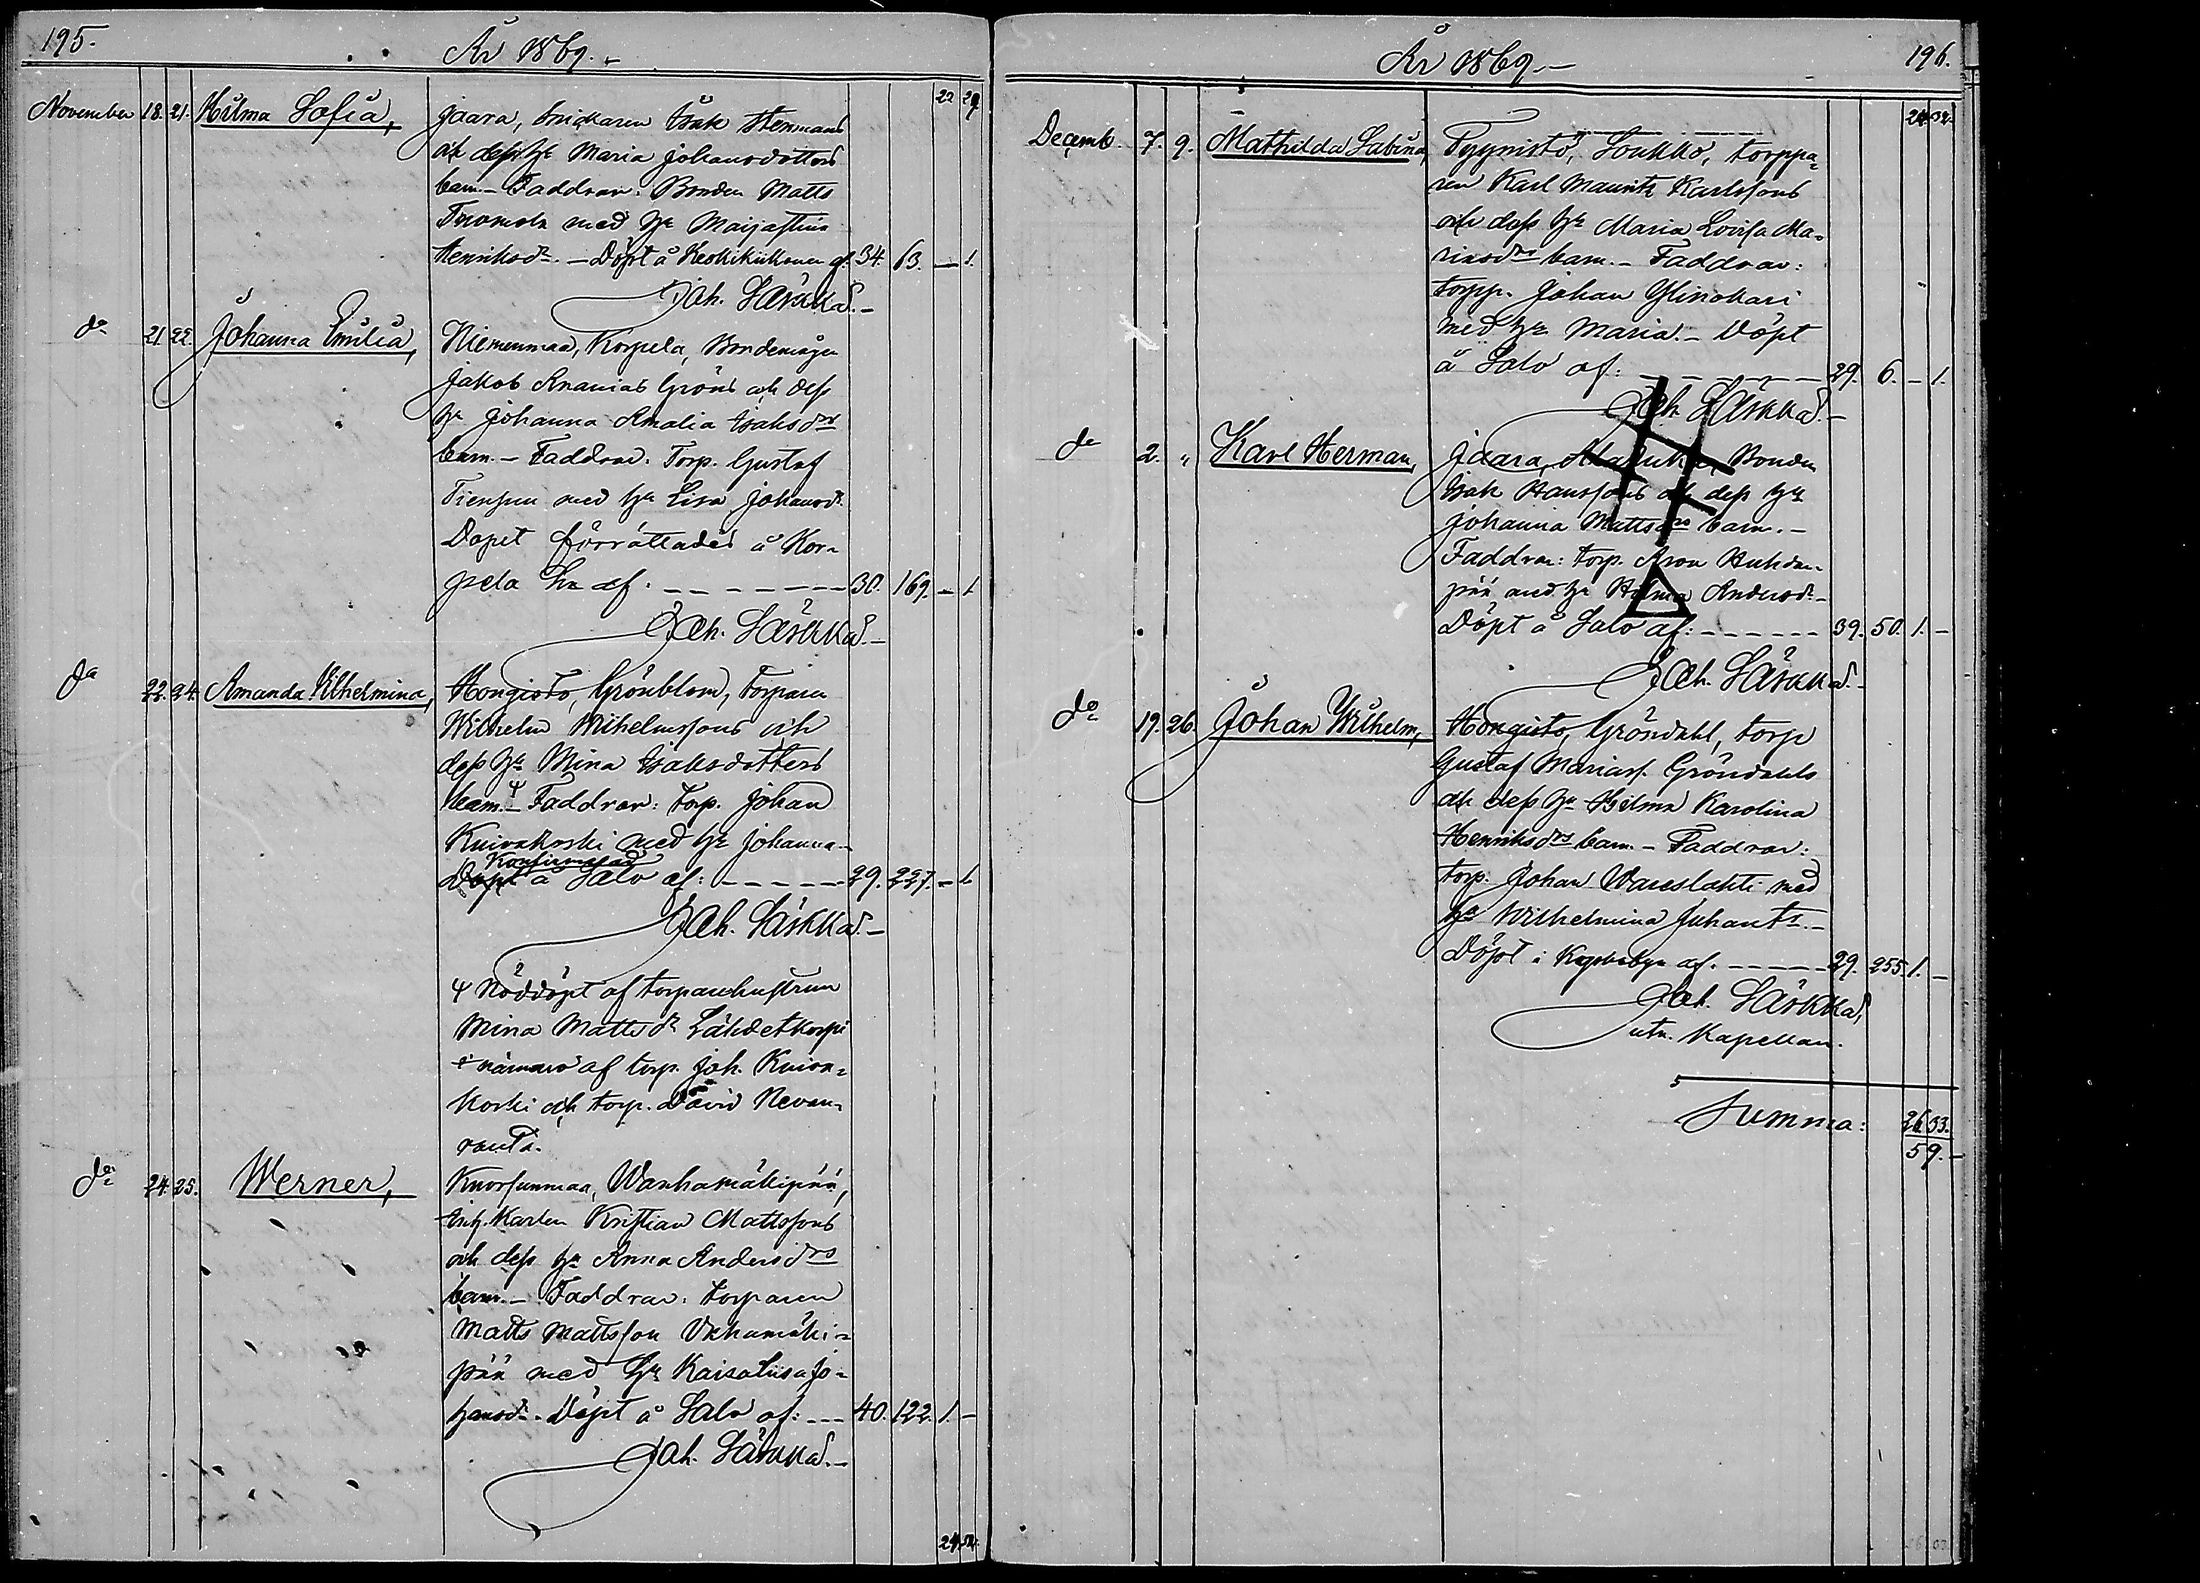 195.
År 1869.
22 29
November 18. 21. Hilma Sofia, Jaara, Snickaren Isak Stenmans
och dess hu Maria Johansdotters
barn. – Faddrar: Bonden Matts
Tuomola med hu Maijastina
Henriksdr. – Döpt å Keskikiikonen af 34. 63. – 1.
Joh. Säskkä. –
do 21. 22. Johanna Emilia, Niemenmaa, Korpela, Bondemågen
Jakob Ananias Gröns och dess
hu Johanna Amalia Isaksdrs
barn. – Faddrar: Torp. Gustaf
med hu Lisa Johansdr.
Dopet förrättades å Kor-
pela hn af. – – – – – – 30. 169. – 1.
Joh. Säskkä. –
do 22. 24. Amanda Wilhelmina, Hongisto, Grönblom, Torparen
Wilhelm Wilhelmssons och
dess hu Mina Isaksdotters
barn. – Faddrar: Torp. Johan
Kuivakoski med hu Johanna. –
Konfirmerad
Döpt å Salo af: – – – – – 29. 227. – 1.
Joh. Säskkä. –
Nöddöpt af torparehustrun
Mina Mattsdr Lähdetkorpi
i närvaro af torp. Joh. Kuiva-
koski och torp. David Nevan-
ranta.
do 24. 25. Werner, Kuorsunmaa, Wanhamäkipää,
Inh. Karlen Kristian Mattssons
och dess hu Anna Andersdrs
barn. – Faddrar: torparen
Matts Mattsson
pää med hu Kaisa Liisa Jo-
hansdr. Döpt å Salo af: – – – 40. 122. 1. –
Joh. Säskkä. –
År 1869. –
196.
24 32.
Decemb. 7. 9. Mathilda Sabina, Pyynistö, Soukko, torppa-
ren Karl Maurits Karlssons
och dess hu Maria Lovisa Ma-
riasdrs barn. – Faddrar:
torpp. Johan Ylinokari
med hu Maria. – Döpt
å Salo af: – – – – – 29. 6. – 1.
Joh. Säskkä. –
do 2. " Karl Herman, Jaara, Bonden
Isak Hanssons och dess hu
Johanna Mattsdrs barn. –
Faddrar: torp. Aron Huhdan-
pää med hu Hilma Andersdr. –
Döpt å Salo af: – – – – – – 39. 50. 1. –
Joh. Säskkä. –
do 19. 26. Johan Wilhelm, Hongisto, Gröndahl, torp
Gustaf Mariass. Gröndahls
och dess hu Hilma Karolina
Henriksdrs barn. – Faddrar:
torp. Johan Wareslahti med
hu Wilhelmina Juhantr. –
Döpt i af. – – – – – 29. 255 1. –
Joh. Säskkä,
utn. Kapellan.
Summa: 26 33.
59. –